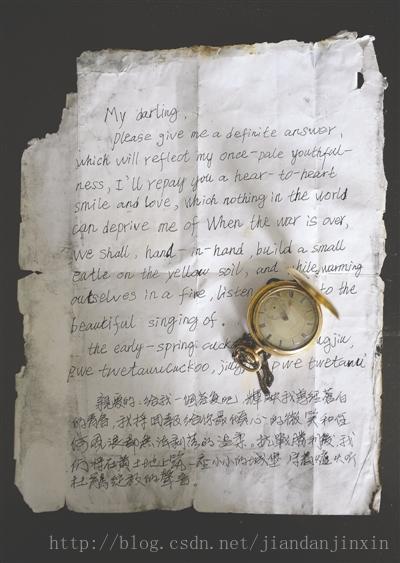 My darling,
please give me a definite answer,
which will reflect my once-pale youthful-
ness, I'll repay you a hear-to-heart
smile and love, which nothing in the world
can deprive me of When the war is over,
we shall, hand-in-hand, build a small
catle on the yellow soil, and while warming
ourselves in a fire, listen to the
beautiful singing of.
the early-spring
pwe
親爱的:给我一個答复吧,輝映我曾經蒼白
的青春,我将回報给你最傾心的微笑和任
何風浪都無法剥落的温柔,抗戰勝利後,我
們将在黄土地上築一座小小的城堡,爐火听
杜鹃绽放的聲音。
http://blog.csdn.net/jiandanjinxin